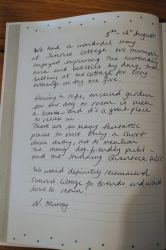 5th - 12th August
We had a wonderful stay
at Sunrise Cottage. We thoroughly
enjoyed exploring the surrounding
area and beaches by day, and
getting at the cottage for cosy
evenings by the fire.
Having a safe, enclosed garden
for our dog to roam is such
a bonus and it's a great place
to relax in.
There are so many fantastic
places to visit only a short
drive away, not to mention
the many dog friendly pubs
and the stunning
We would definitely recommend
Sunrise Cottage to friends and would
love to return.
N. Murray